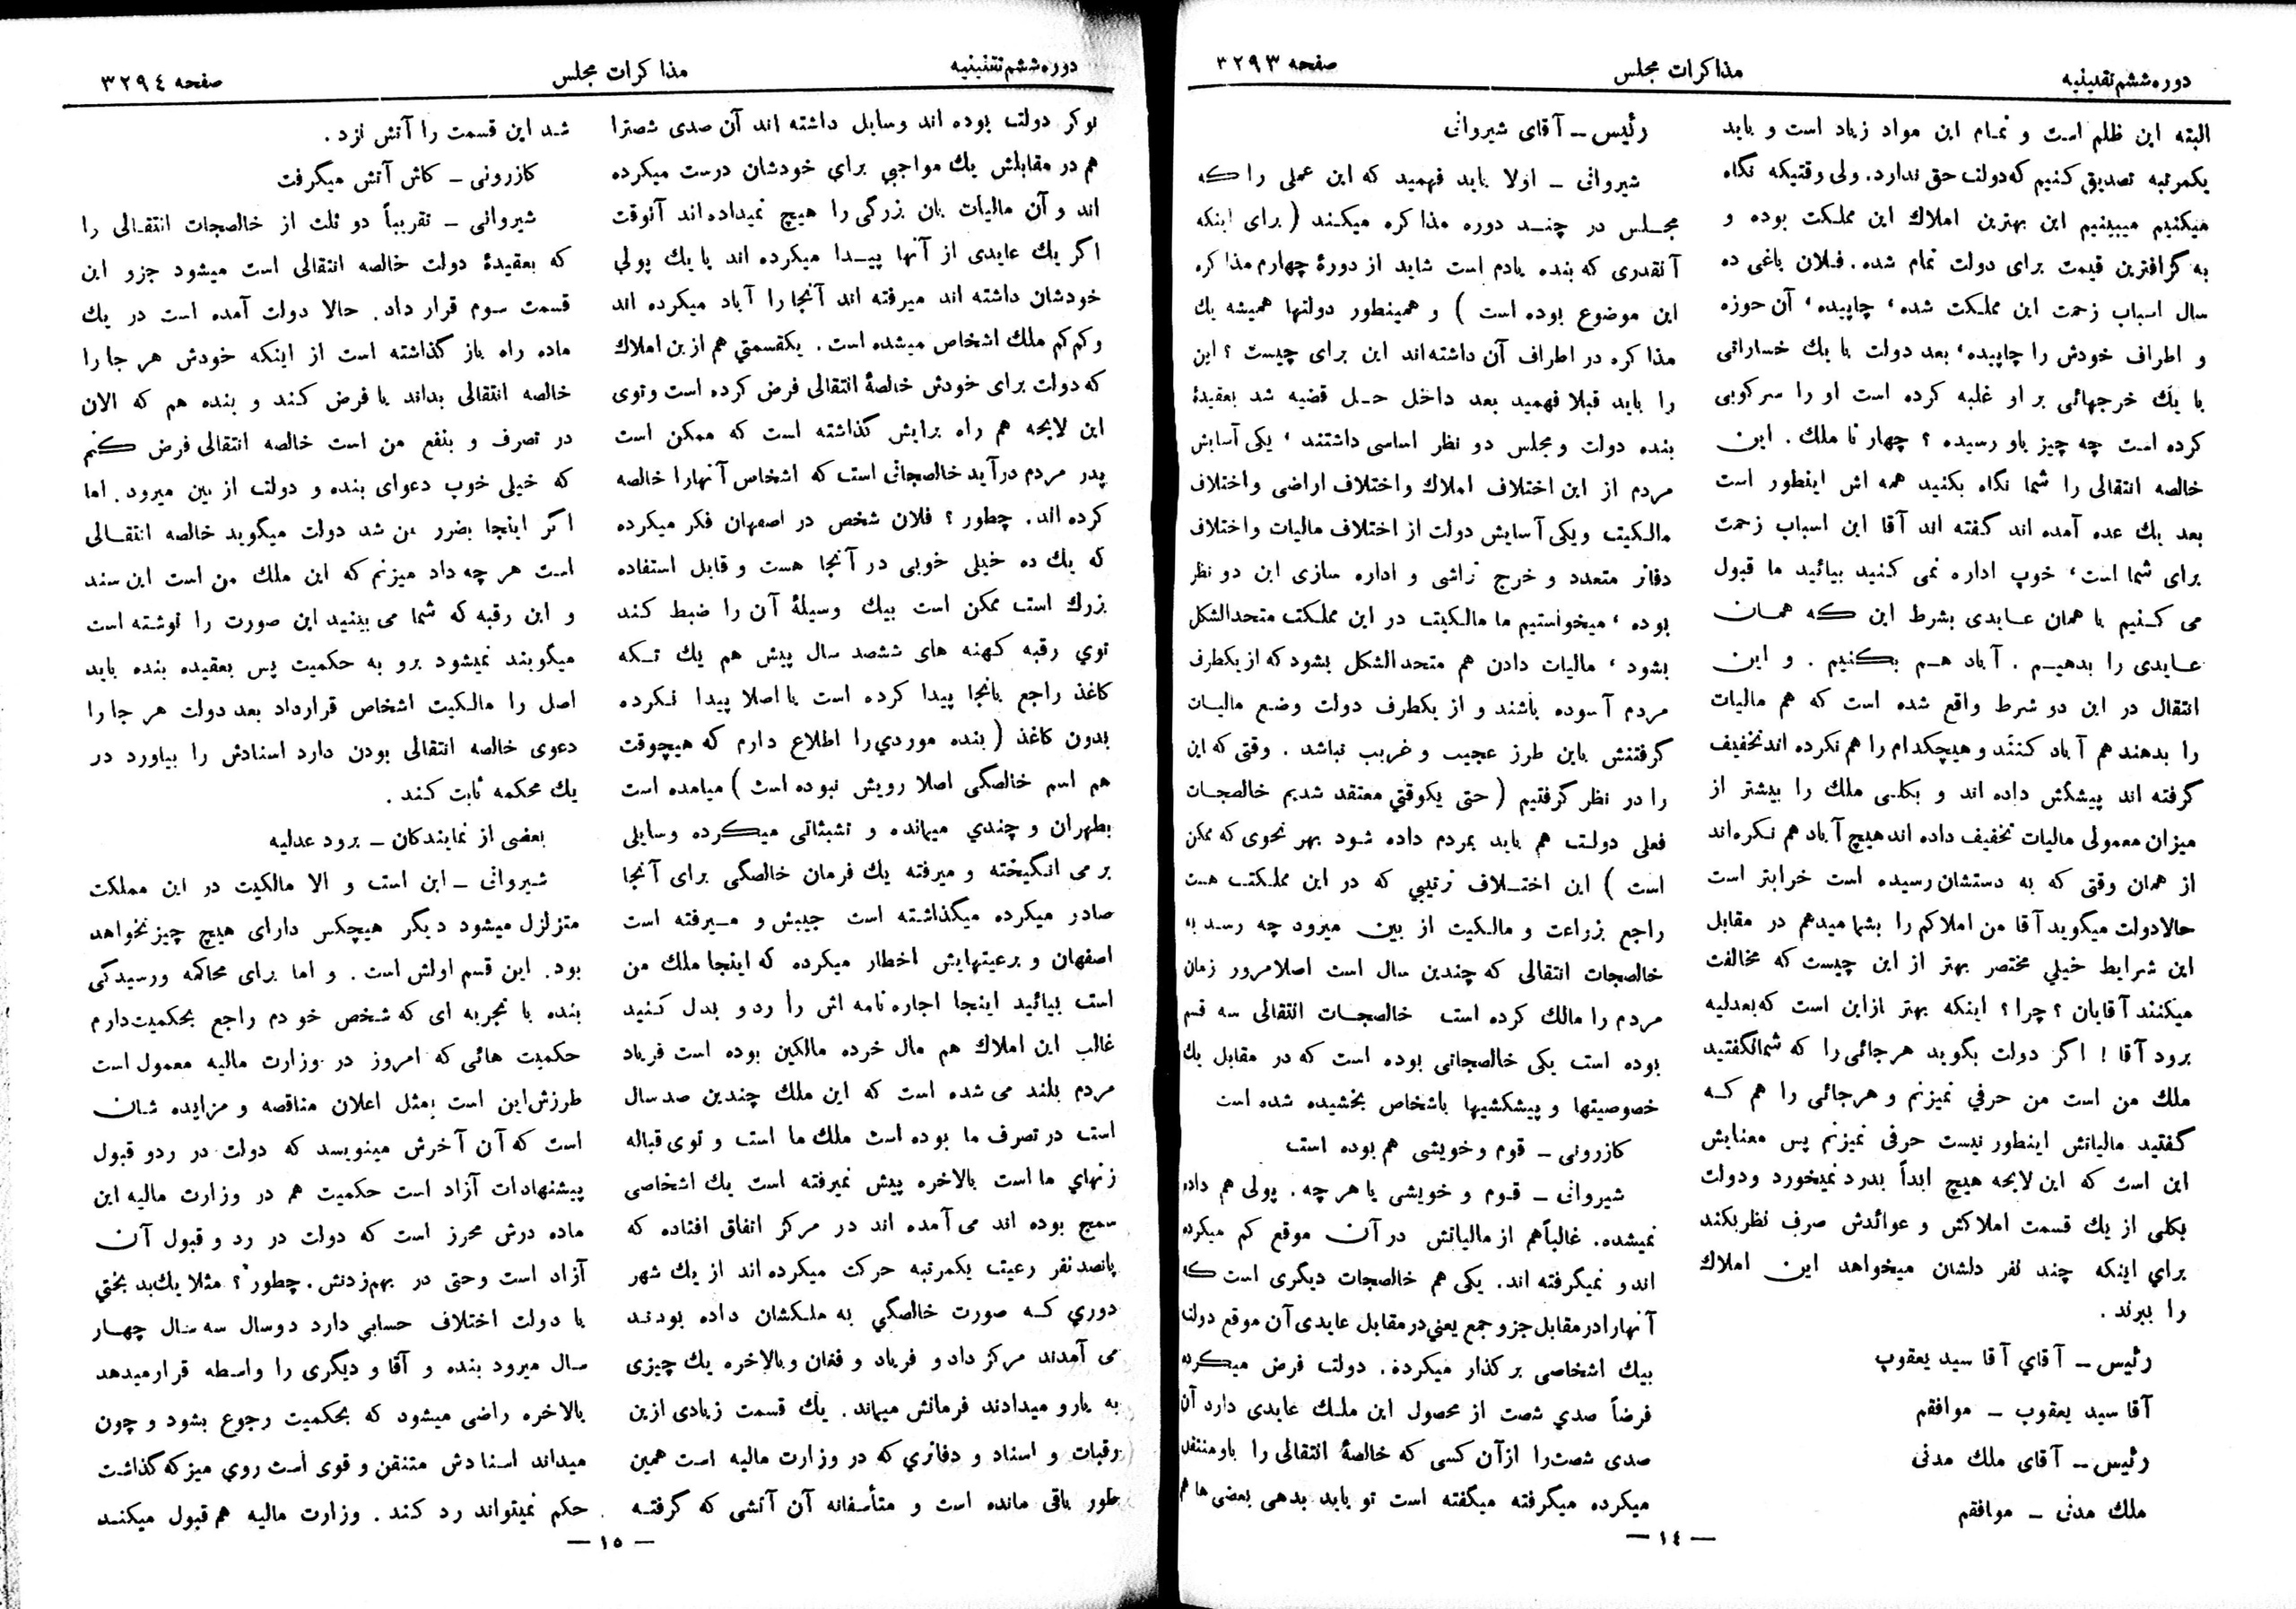 دوره ششم تقنینیه
مذاکرات مجلس
صفحه ۳۲۹۳
البته این ظلم است و تمام این مواد زیاد است و باید
یکمرتبه تصدیق کنیم که دولت حق ندارد. ولی وقتیکه نگاه
میکنیم میبینیم این بهترین املاك این مملکت بوده و
به گزافترین قیمت برای دولت تمام شده. فلان یاغی ده
سال اسباب زحمت این مملکت شده، چاپیده، آن حوزه
و اطراف خودش را چاپیده، بعد دولت با یك خساراتی
با یك خرجهائی بر او غلبه کرده است او را سرکوبی
کرده است چه چیز باو رسیده ؟ چهار تا ملك . این
خالصه انتقالی را شما نگاه بکنید همه اش اینطور است
بعد یك عده آمده اند گفته اند آقا این اسباب زحمت
برای شما است، خوب اداره نمی کنید بیائید ما قبول
می کنیم با همان عایدی بشرط این که همان
عایدی را بدهیم . آباد هم بکنیم . و این
انتقال در این دو شرط واقع شده است که هم مالیات
را بدهند هم آباد کنند و هیچکدام را هم نکرده اند تخفیف
گرفته اند پیشکش داده اند و بکلی ملك را بیشتر از
میزان معمولی مالیات تخفیف داده اند هیچ آباد هم نکره‌اند
از همان وقتی که به دستشان رسیده است خرابتر است
حالا دولت میگوید آقا من املاکم را بشما میدهم در مقابل
این شرایط خیلي مختصر بهتر از این چیست که مخالفت
میکنند آقایان ؟ چرا ؟ اینکه بهتر از این است که بعدلیه
برود آقا ! اگر دولت بگوید هر جائی را که شما گفتید
ملك من است من حرفي نمیزنم و هر جائی را هم که
گفتید مالیاتش اینطور نیست حرفی نمیزنم پس معنایش
این است که این لایحه هیچ ابداً بدرد نمیخورد و دولت
بکلی از یك قسمت املاکش و عوائدش صرف نظر بکند
براي اینکه چند نفر دلشان میخواهد این املاك
را ببرند .
رئیس ــ آقاي آقا سید یعقوب
آقا سید یعقوب ــ موافقم
رئیس ــ آقای ملك مدنی
ملك مدنی ــ موافقم
رئیس ــ آقای شیروانی
شیروانی ــ اولا باید فهمید که این عملی را که
مجلس در چند دوره مذاکره میکند ( برای اینکه
آنقدری که بنده یادم است شاید از دورهٔ چهارم مذاکره
این موضوع بوده است ) و همینطور دولتها همیشه یك
مذاکره در اطراف آن داشته‌اند این برای چیست ؟ این
را باید قبلا فهمید بعد داخل حل قضیه شد بعقیدهٔ
بنده دولت و مجلس دو نظر اساسی داشتند ، یکی آسایش
مردم از این اختلاف املاك و اختلاف اراضی و اختلاف
مالکیت و یکی آسایش دولت از اختلاف مالیات و اختلاف
دفاتر متعدد و خرج تراشی و اداره سازی این دو نظر
بوده ، میخواستیم ما مالکیت در این مملکت متحدالشکل
بشود ، مالیات دادن هم متحدالشکل بشود که از یکطرف
مردم آسوده باشند و از یکطرف دولت وضع مالیات
گرفتنش باین طرز عجیب و غریب نباشد . وقتی که این
را در نظر گرفتیم ( حتی یکوقتي معتقد شدیم خالصجات
فعلی دولت هم باید بمردم داده شود بهر نحوی که ممکن
است ) این اختلاف ترتیبي که در این مملکت هست
راجع بزراعت و مالکیت از بین میرود چه رسد به
خالصجات انتقالی که چندین سال است اصلا مرور زمان
مردم را مالك کرده است خالصجات انتقالی سه قسم
بوده است یکی خالصجاتی بوده است که در مقابل یك
خصوصیتها و پیشکشیها باشخاص بخشیده شده است
کازرونی ــ قوم و خویشی هم بوده است
شیروانی ــ قوم و خویشی یا هر چه . پولی هم داده
نمیشده. غالباً هم از مالیاتش در آن موقع کم میکرده
اند و نمیگرفته اند. یکی هم خالصجات دیگری است که
آنها را در مقابل جز و جمع یعني در مقابل عایدی آن موقع دولت
بیك اشخاصی برگذار میکرده. دولت فرض میکرده
فرضاً صدي شصت از محصول این ملك عایدی دارد آن
صدی شصت را از آن کسی که خالصهٔ انتقالی را باو منتقل
میکرده میگرفته میگفته است تو باید بدهی بعضی ها هم
— ۱٤ —
دوره ششم تقنینیه
مذاکرات مجلس
صفحه ۳۲۹٤
نوکر دولت بوده اند وسایل داشته اند آن صدی شصترا
هم در مقابلش یك مواجبي براي خودشان درست میکرده
اند و آن مالیات بان بزرگی را هیچ نمیداده اند آنوقت
اگر یك عایدی از آنها پیدا میکرده اند یا یك پولي
خودشان داشته اند میرفته اند آنجا را آباد میکرده اند
و کم کم ملك اشخاص میشده است . یکقسمتي هم از بن املاك
که دولت برای خودش خالصهٔ انتقالی فرض کرده است و توی
این لایحه هم راه برایش گذاشته است که ممکن است
پدر مردم درآید خالصجاتی است که اشخاص آنها را خالصه
کرده اند. چطور ؟ فلان شخص در اصفهان فکر میکرده
که یك ده خیلی خوبی در آنجا هست و قابل استفاده
بزرك است ممکن است بیك وسیلهٔ آن را ضبط کند
توي رقبه کهنه های ششصد سال پیش هم یك تکه
کاغذ راجع بانجا پیدا کرده است یا اصلا پیدا نکرده
بدون کاغذ ( بنده موردي را اطلاع دارم که هیچوقت
هم اسم خالصگی اصلا رویش نبوده است ) میامده است
بطهران و چندي میمانده و تشبثاتی میکرده وسایلی
بر می انگیخته و میرفته یك فرمان خالصگی برای آنجا
صادر میکرده میگذاشته است جیبش و میرفته است
اصفهان و برعیتهایش اخطار میکرده که اینجا ملك من
است بیائید اینجا اجاره نامه اش را رد و بدل کنید
غالب این املاك هم مال خرده مالکین بوده است فریاد
مردم بلند می شده است که این ملك چندین صد سال
است در تصرف ما بوده است ملك ما است و توی قباله
زنهاي ما است بالاخره پیش نمیرفته است یك اشخاصی
سمج بوده اند می آمده اند در مرکز اتفاق افتاده که
پانصد نفر رعیت یکمرتبه حرکت میکرده اند از یك شهر
دوري که صورت خالصگي به ملکشان داده بودند
می آمدند مرکز داد و فریاد و فغان و بالاخره یك چیزی
به یارو میدادند فرمانش میماند. یك قسمت زیادی ازین
رقبات و اسناد و دفاتري که در وزارت مالیه است همین
طور باقی مانده است و متأسفانه آن آتشی که گرفته
شد این قسمت را آتش نزد .
کازرونی ــ کاش آتش میگرفت
شیروانی ــ تقریباً دو ثلث از خالصجات انتقالی را
که بعقیدهٔ دولت خالصه انتقالی است میشود جزو این
قسمت سوم قرار داد. حالا دولت آمده است در یك
ماده راه باز گذاشته است از اینکه خودش هر جا را
خالصه انتقالی بداند یا فرض کند و بنده هم که الان
در تصرف و بنفع من است خالصه انتقالی فرض کنم
که خیلی خوب دعوای بنده و دولت از بین میرود. اما
اگر اینجا بضرر من شد دولت میگوید خالصه انتقالی
است هر چه داد میزنم که این ملك من است این سند
و این رقبه که شما می بینید این صورت را نوشته است
میگویند نمیشود برو به حکمیت پس بعقیده بنده باید
اصل را مالکیت اشخاص قرارداد بعد دولت هر جا را
دعوی خالصه انتقالی بودن دارد اسنادش را بیاورد در
یك محکمه ثابت کند .
بعضی از نمایندگان ــ برود عدلیه
شیروانی ــ این است و الا مالکیت در این مملکت
متزلزل میشود دیگر هیچکس دارای هیچ چیز نخواهد
بود. این قسم اولش است . و اما برای محاکمه و رسیدگی
بنده با تجربه ای که شخص خودم راجع بحکمیت دارم
حکمیت هائی که امروز در وزارت مالیه معمول است
طرزش این است بمثل اعلان مناقصه و مزایده شان
است که آن آخرش مینویسد که دولت در رد و قبول
پیشنهادات آزاد است حکمیت هم در وزارت مالیه این
ماده درش محرز است که دولت در رد و قبول آن
آزاد است و حتی در بهم زدنش . چطور ؟ مثلا یك بد بختي
با دولت اختلاف حسابي دارد دو سال سه سال چهار
سال میرود بنده و آقا و دیگری را واسطه قرار میدهد
بالاخره راضی میشود که بحکمیت رجوع بشود و چون
میداند اسنادش متنقن و قوی است روي میز که گذاشت
حکم نمیتواند رد کند . وزارت مالیه هم قبول میکند
— ۱٥ —